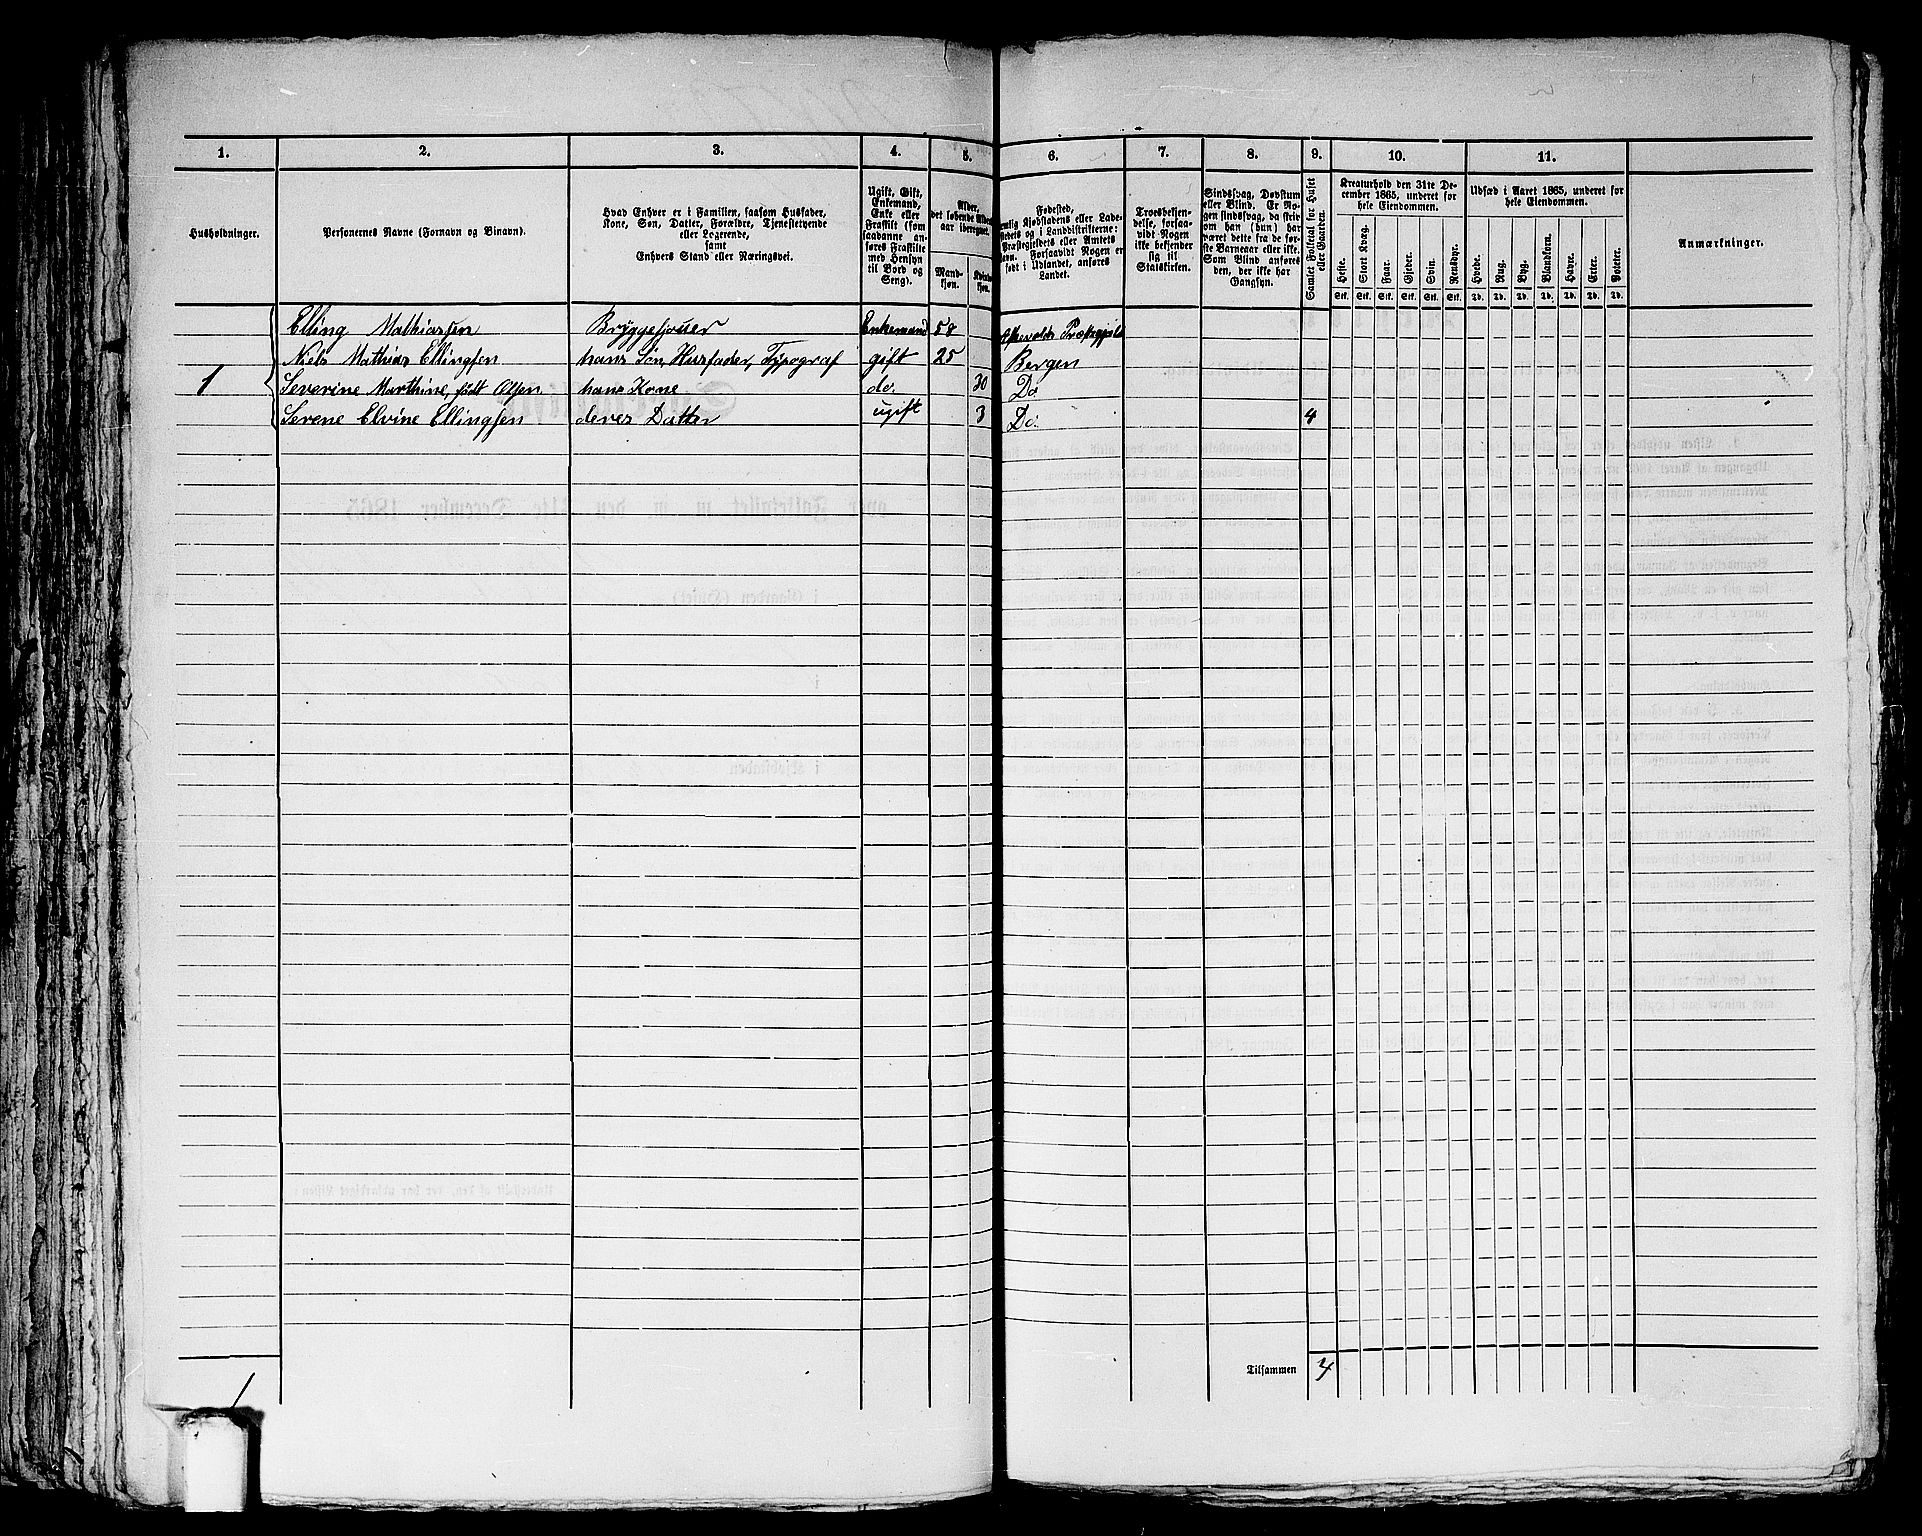 1. 2. 3. 4. 5. 6. 7. 8. 9. 10. 11.
Husholdninger.
Personernes Navne (Fornavn og Binavn).
Hvad Enhver er i Familien, saasom Husfader,
Kone, Søn, Datter, Forældre, Tjenestetyende
eller Logerende,
samt
Enhvers Stand eller Næringsvei.
Ugift, Gift,
Enkemand,
Enke eller
Fraskilt (som
saadanne an-
føres Fraskilte
med Hensyn
til Bord og
Seng).
Alder,
det løbende Alders-
aar iberegnet.
Mand-
kjøn.
Kvinde-
kjøn.
Fødested,
nemlig Kjøbstadens eller Lade-
stedets og i Landdistrikterne:
Præstegjeldets eller Amtets
Navn. Forsaavidt Nogen er
født i Udlandet, anføres
Landet.
Troesbekjen-
delse, forsaa-
vidt Nogen
ikke bekjender
sig til
Statskirken.
Sindssvag, Døvstum
eller Blind. Er No-
gen sindssvag, da skriv
om han (hun) har
været dette fra de før-
ste Barneaar eller ikke.
Som Blind anføres
den, der ikke har
Gangsyn.
Samlet Folketal for Huset
eller Gaarden.
Kreaturhold den 31te De-
cember 1865, underet for
hele Eiendommen.
Heste. Stort Kvæg. Faar. Gjeder. Svin. Rensdyr.
Stk. Stk. Stk. Stk. Stk. Stk.
Udsæd i Aaret 1865, underet for
hele Eiendommen.
Hvede. Rug. Byg. Blandkorn. Havre. Erter. Poteter.
Td. Td. Td. Td. Td. Td. Td.
Anmærkninger.
Elling Mathiassen Bryggesjouer Enkemand 58 Præstegjeld
Niels Mathias Ellingsen hans Søn, Husfader, Typograf gift 25 Bergen
1 Severine Marthine, født Olsen hans Kone do. 30 Do
Serene Elvine Ellingsen deres Datter ugift 3 Do: 4
Tilsammen 4